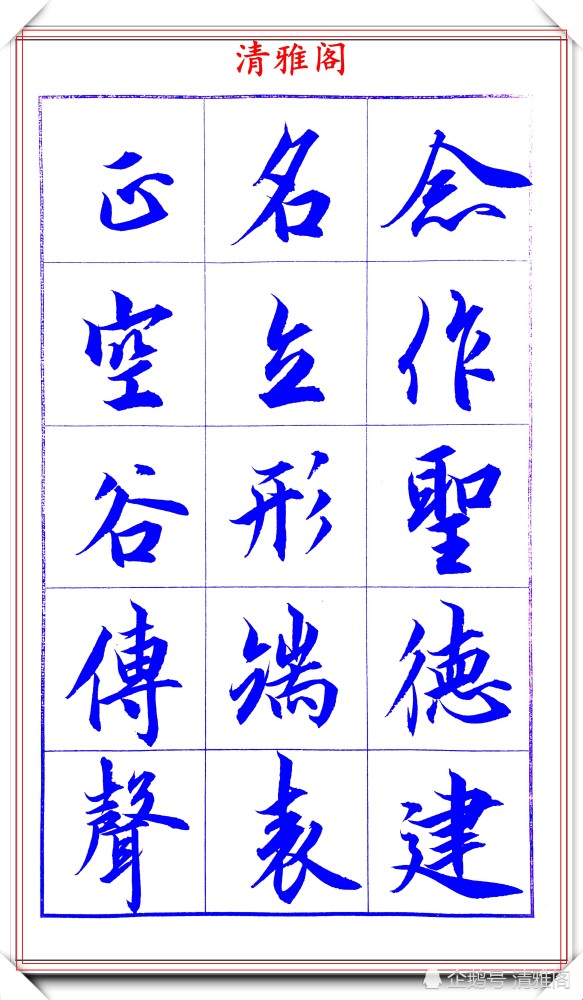 清雅阁
念作聖德建
名立形端表
正空谷傳聲
企鹅号 清雅阁